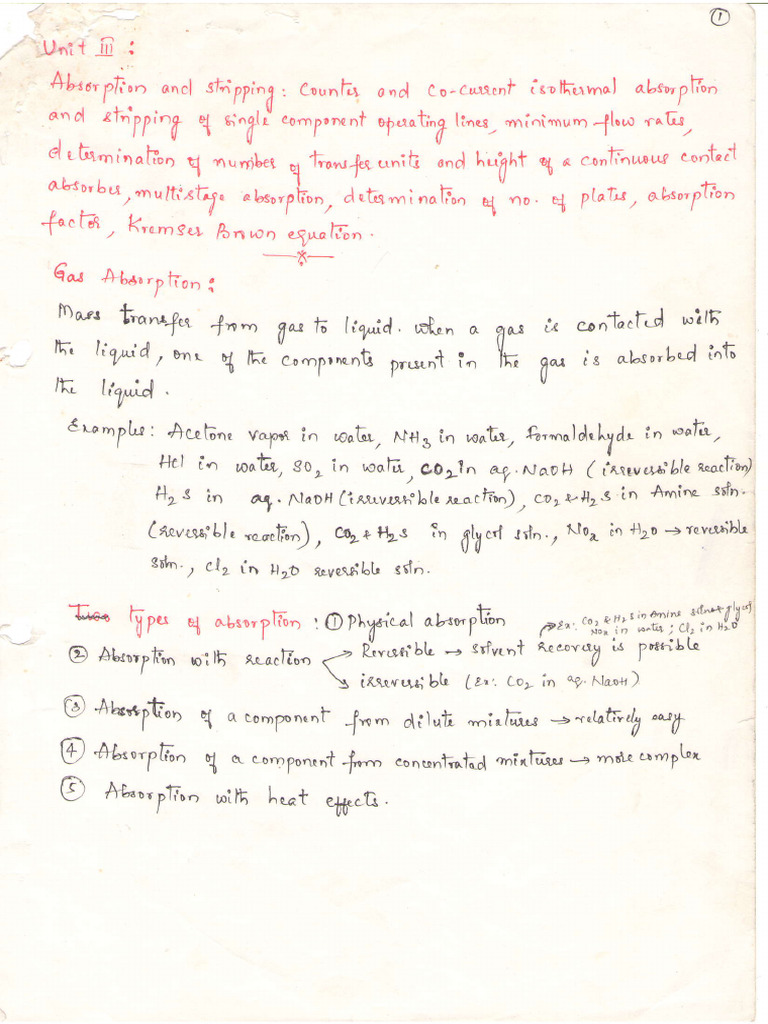 ①
Unit III :
Absorption and stripping: counter and co-current isothermal absorption
and stripping of single component operating lines, minimum flow rates,
determination of number of transfer units and height of a continuous contact
absorber, multistage absorption, determination of no. of plates, absorption
factor, Kremser Brown equation.
Gas Absorption:
Mass transfer from gas to liquid. When a gas is contacted with
the liquid, one of the components present in the gas is absorbed into
the liquid.
Examples: Acetone vapor in water, NH3 in water, formaldehyde in water,
HCl in water, SO2 in water, CO2 in aq. NaOH (irreversible reaction)
H2S in aq. NaOH (irreversible reaction), CO2 & H2S in Amine soln.
(reversible reaction), CO2 & H2S in glycol soln., NOx in H2O → reversible
soln., Cl2 in H2O reversible soln.
Types of absorption : ① Physical absorption
Ex: CO2 & H2S in amine soln & glycol
NOx in water ; Cl2 in H2O
② Absorption with reaction → Reversible → solvent recovery is possible
→ irreversible (Ex: CO2 in aq. NaOH)
③ Absorption of a component from dilute mixtures → relatively easy
④ Absorption of a component from concentrated mixtures → more complex
⑤ Absorption with heat effects.